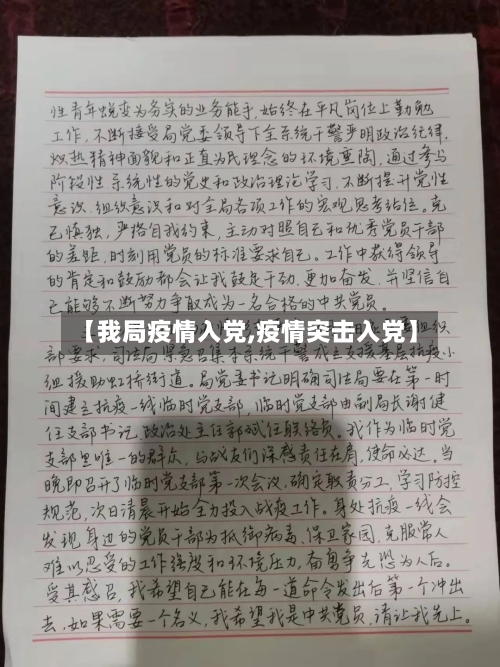 性青年蜕变为务实的业务能手,始终在平凡岗位上勤勉
工作,不断接受局党委领导下全系统干警严明政治纪律,
炽热精神面貌和正直为民理念的环境熏陶,通过参与
阶段性系统性的党史和政治理论学习,不断提升党性
意识、组织意识和对全局各项工作的宏观思考站位。克
己慎独,严格自我约束,主动对照自己和优秀党员干部
的差距,时刻用党员的标准要求自己。工作中获得领导
的肯定和鼓励都会让我鼓足干劲,更加奋发,并坚信自
己能够不断努力争取成为一名合格的中共党员。
【我局疫情入党,疫情突击入党】
组织
部要求,司法局紧急召集本系统干警成立支援基层抗疫小
组援助虹桥街道。局党委书记明确司法局要在第一时
间建立抗疫一线临时党支部,临时党支部由副局长谢健
任支部书记,政治处主任郭斌任联络员。我作为临时党
支部里唯一的群众,与战友们深感责任在肩,使命必达,当
晚即召开了临时党支部第一次会议,确定职责分工,学习防控
规范,次日清晨开始全力投入战疫工作。身处抗疫一线会
发现,身边的党员干部为抵御病毒、保卫家园,克服常人
难以忍受的工作强度和环境压力,奋勇争先恐为人后。
受其感召,我希望自己能在每一道命令发出后第一个冲出
去,如果需要一个名义,我希望我是中共党员,请让我先上。